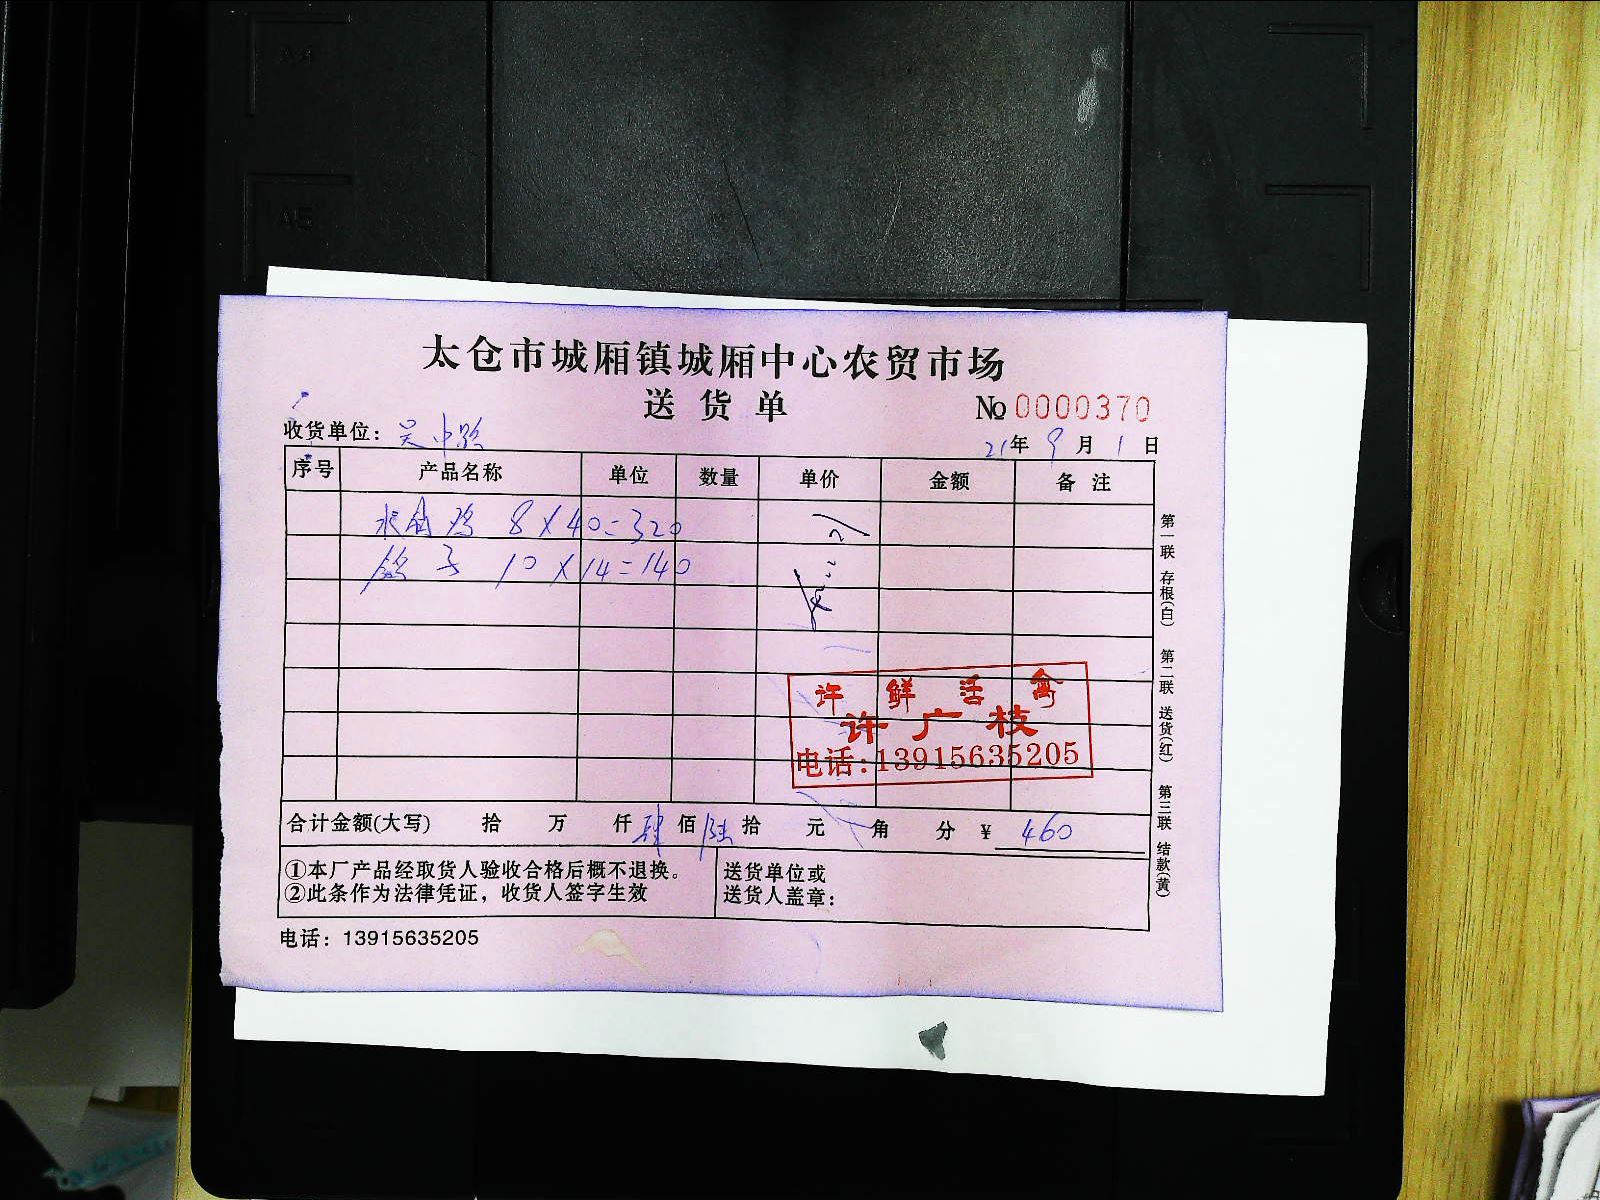 A4
A5
太仓市城厢镇城厢中心农贸市场
送货单
№ 0000370
收货单位：吴中路
21年 9月 1日
序号 产品名称 单位 数量 单价 金额 备注
鸡 8×40=320
鸽子 10×14=140
许鲜活禽
许广枝
电话：13915635205
合计金额(大写) 拾 万 仟 肆 佰 陆 拾 元 角 分 ¥ 460
①本厂产品经取货人验收合格后概不退换。
②此条作为法律凭证，收货人签字生效
送货单位或
送货人盖章：
电话：13915635205
第一联 存根(白) 第二联 送货(红) 第三联 结款(黄)